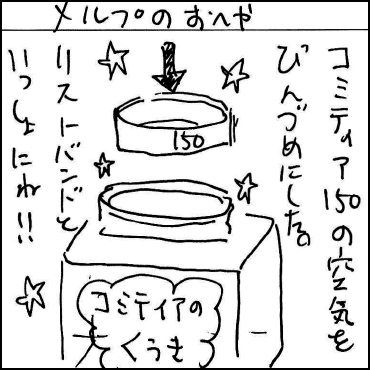 メルプのおへや
コミティア150の空気を
びんづめにした。
リストバンドと
いっしょにね!!
150
コミティアの
くうき